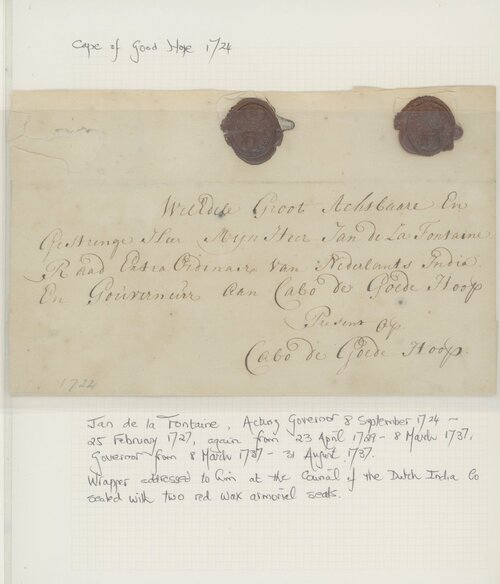 Cape of Good Hope 1724
WelEdele Groot Achtbaare En
Gestrenge Heer Mijn Heer Jan de La Fontaine
Raad Extra Ordinair van Nederlants India
En Gouverneur aan Cabo de Goede Hoop
Present op
Cabo de Goede Hoop
1724
Jan de la Fontaine, Acting Governor 8 September 1724 -
25 February 1727, again from 23 April 1729 - 8 March 1737,
Governor from 8 March 1737 - 31 August 1737.
Wrapper addressed to him at the Council of the Dutch India Co
sealed with two red wax armorial seals.